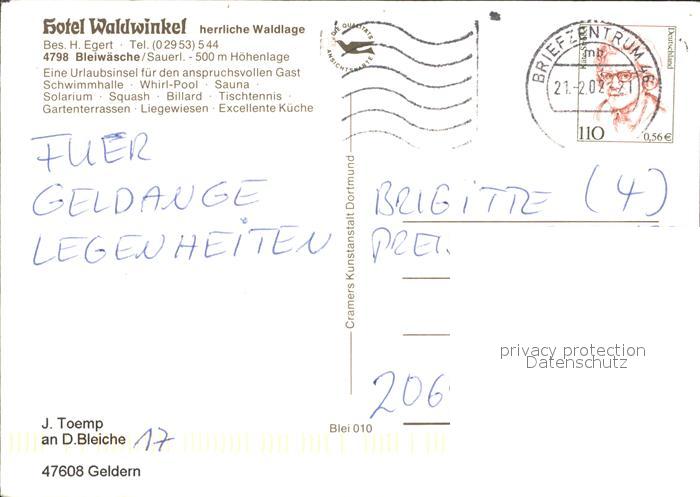 Hotel Waldwinkel herrliche Waldlage
Bes. H. Egert · Tel. (0 29 53) 5 44
4798 Bleiwäsche/Sauerl. - 500 m Höhenlage
Eine Urlaubsinsel für den anspruchsvollen Gast
Schwimmhalle · Whirl-Pool · Sauna ·
Solarium · Squash · Billard · Tischtennis ·
Gartenterrassen · Liegewiesen · Excellente Küche
DIE QUALITÄTS
ANSICHTSKARTE
BRIEFZENTRUM 46
mb
21.-2.02-21
Deutschland
110
0,56 €
FUER
GELDANGE
LEGENHEITEN
Cramers Kunstanstalt Dortmund
BRIGITTE (4)
PREI
privacy protection
Datenschutz
206
Blei 010
J. Toemp
an D.Bleiche 17
47608 Geldern